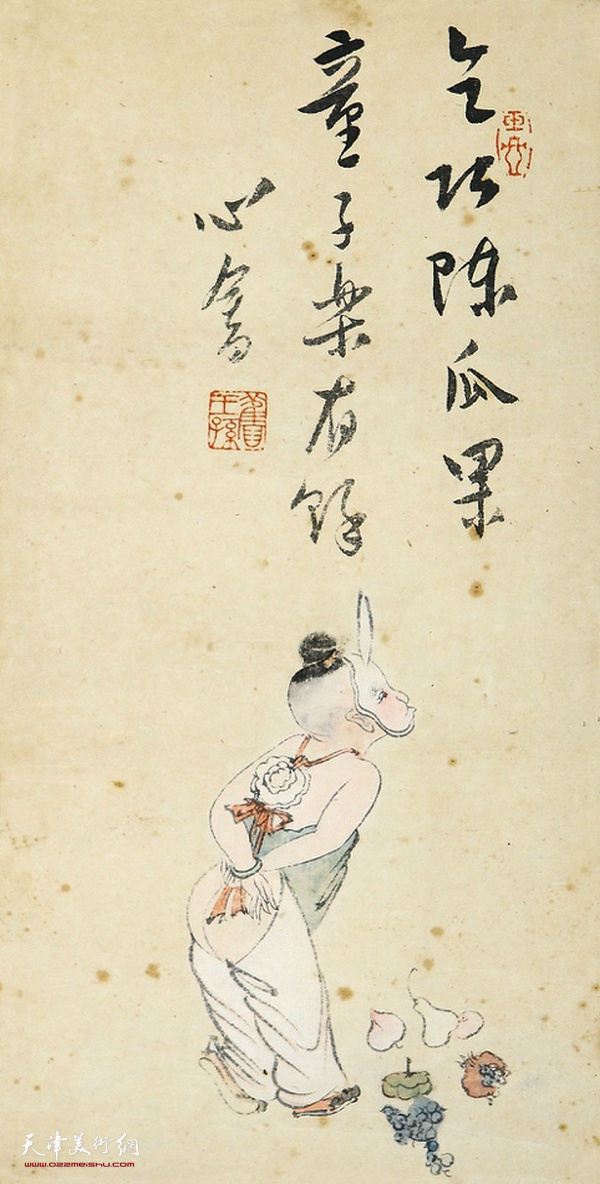 乞巧陈瓜果
童子乐有馀
心畬
旧王孙
天津美術網
www.022meishu.com